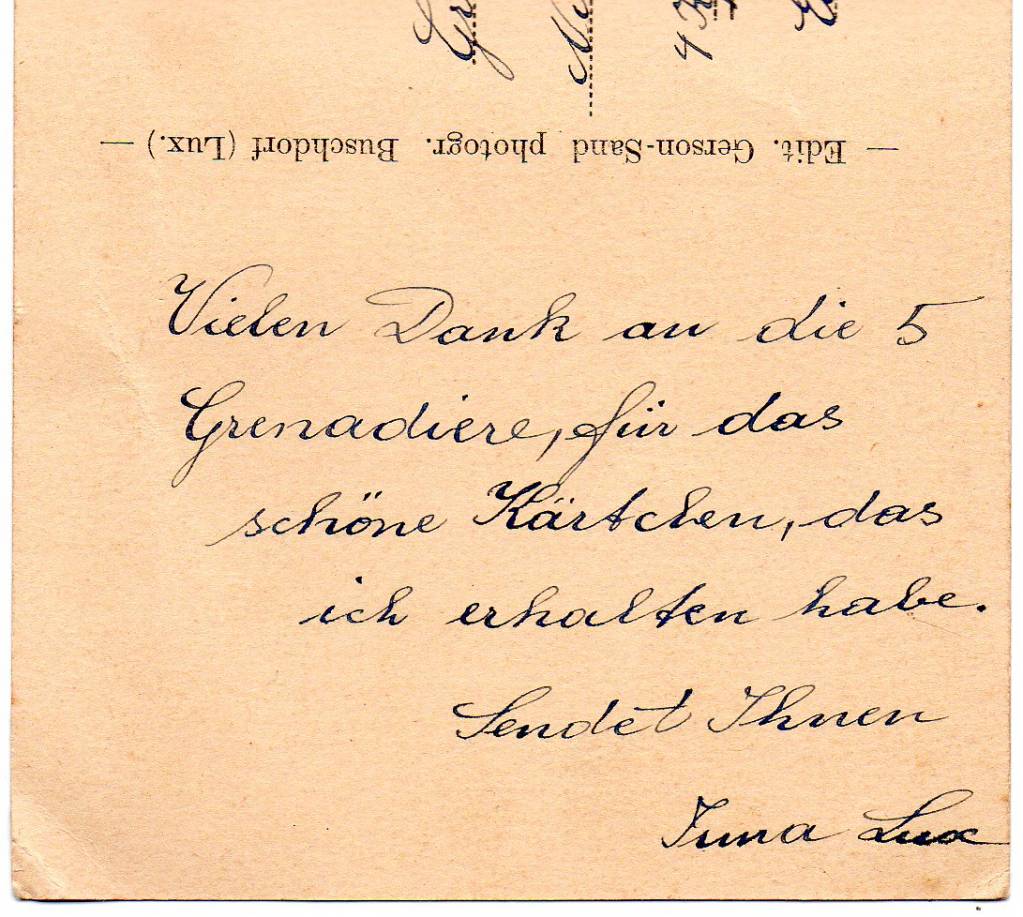 — Edit. Gerson-Sand photogr. Buschdorf (Lux.) —
Vielen Dank an die 5
Grenadiere, für das
schöne Kärtchen, das
ich erhalten habe.
Sendet Ihnen
Lux